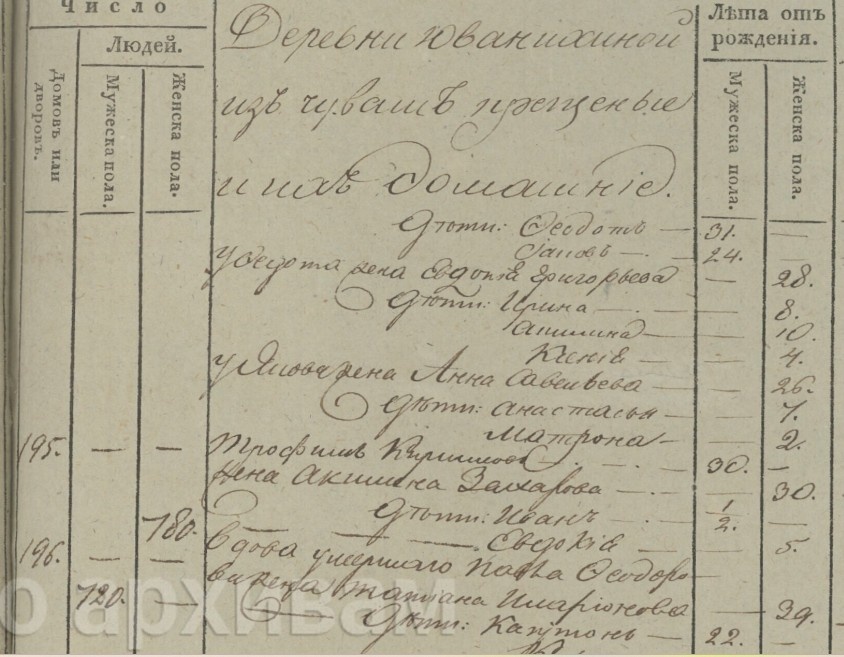 Число
Людей.
Домовъ или дворовъ.
Мужеска пола.
Женска пола.
Деревни Юванихиной
изъ чувашъ крещеные
и ихъ домашніе.
Лѣта отъ рожденія.
Мужеска пола.
Женска пола.
Дѣти: Ѳеодотъ — 31. —
Іаковъ — 24. —
У Ѳедота жена Евдокія Григорьева — 28.
Дѣти: Ирина — — 8.
Акилина — — 10.
Ксенія — — 4.
У Якова жена Анна Савельева — — 26.
Дѣти: Анастасья — — 7.
Матрона — — 2.
195. — — Трофимъ — 30. —
Жена Акилина Захарова — — 30.
Дѣти: Иванъ — 1/2. —
780. Евдокія — — 5.
196. — — Вдова умершаго Павла Ѳеодоро
ва жена Татіана Иларіонова — 39.
720. — Дѣти: Капитонъ — 22. —
о архивам